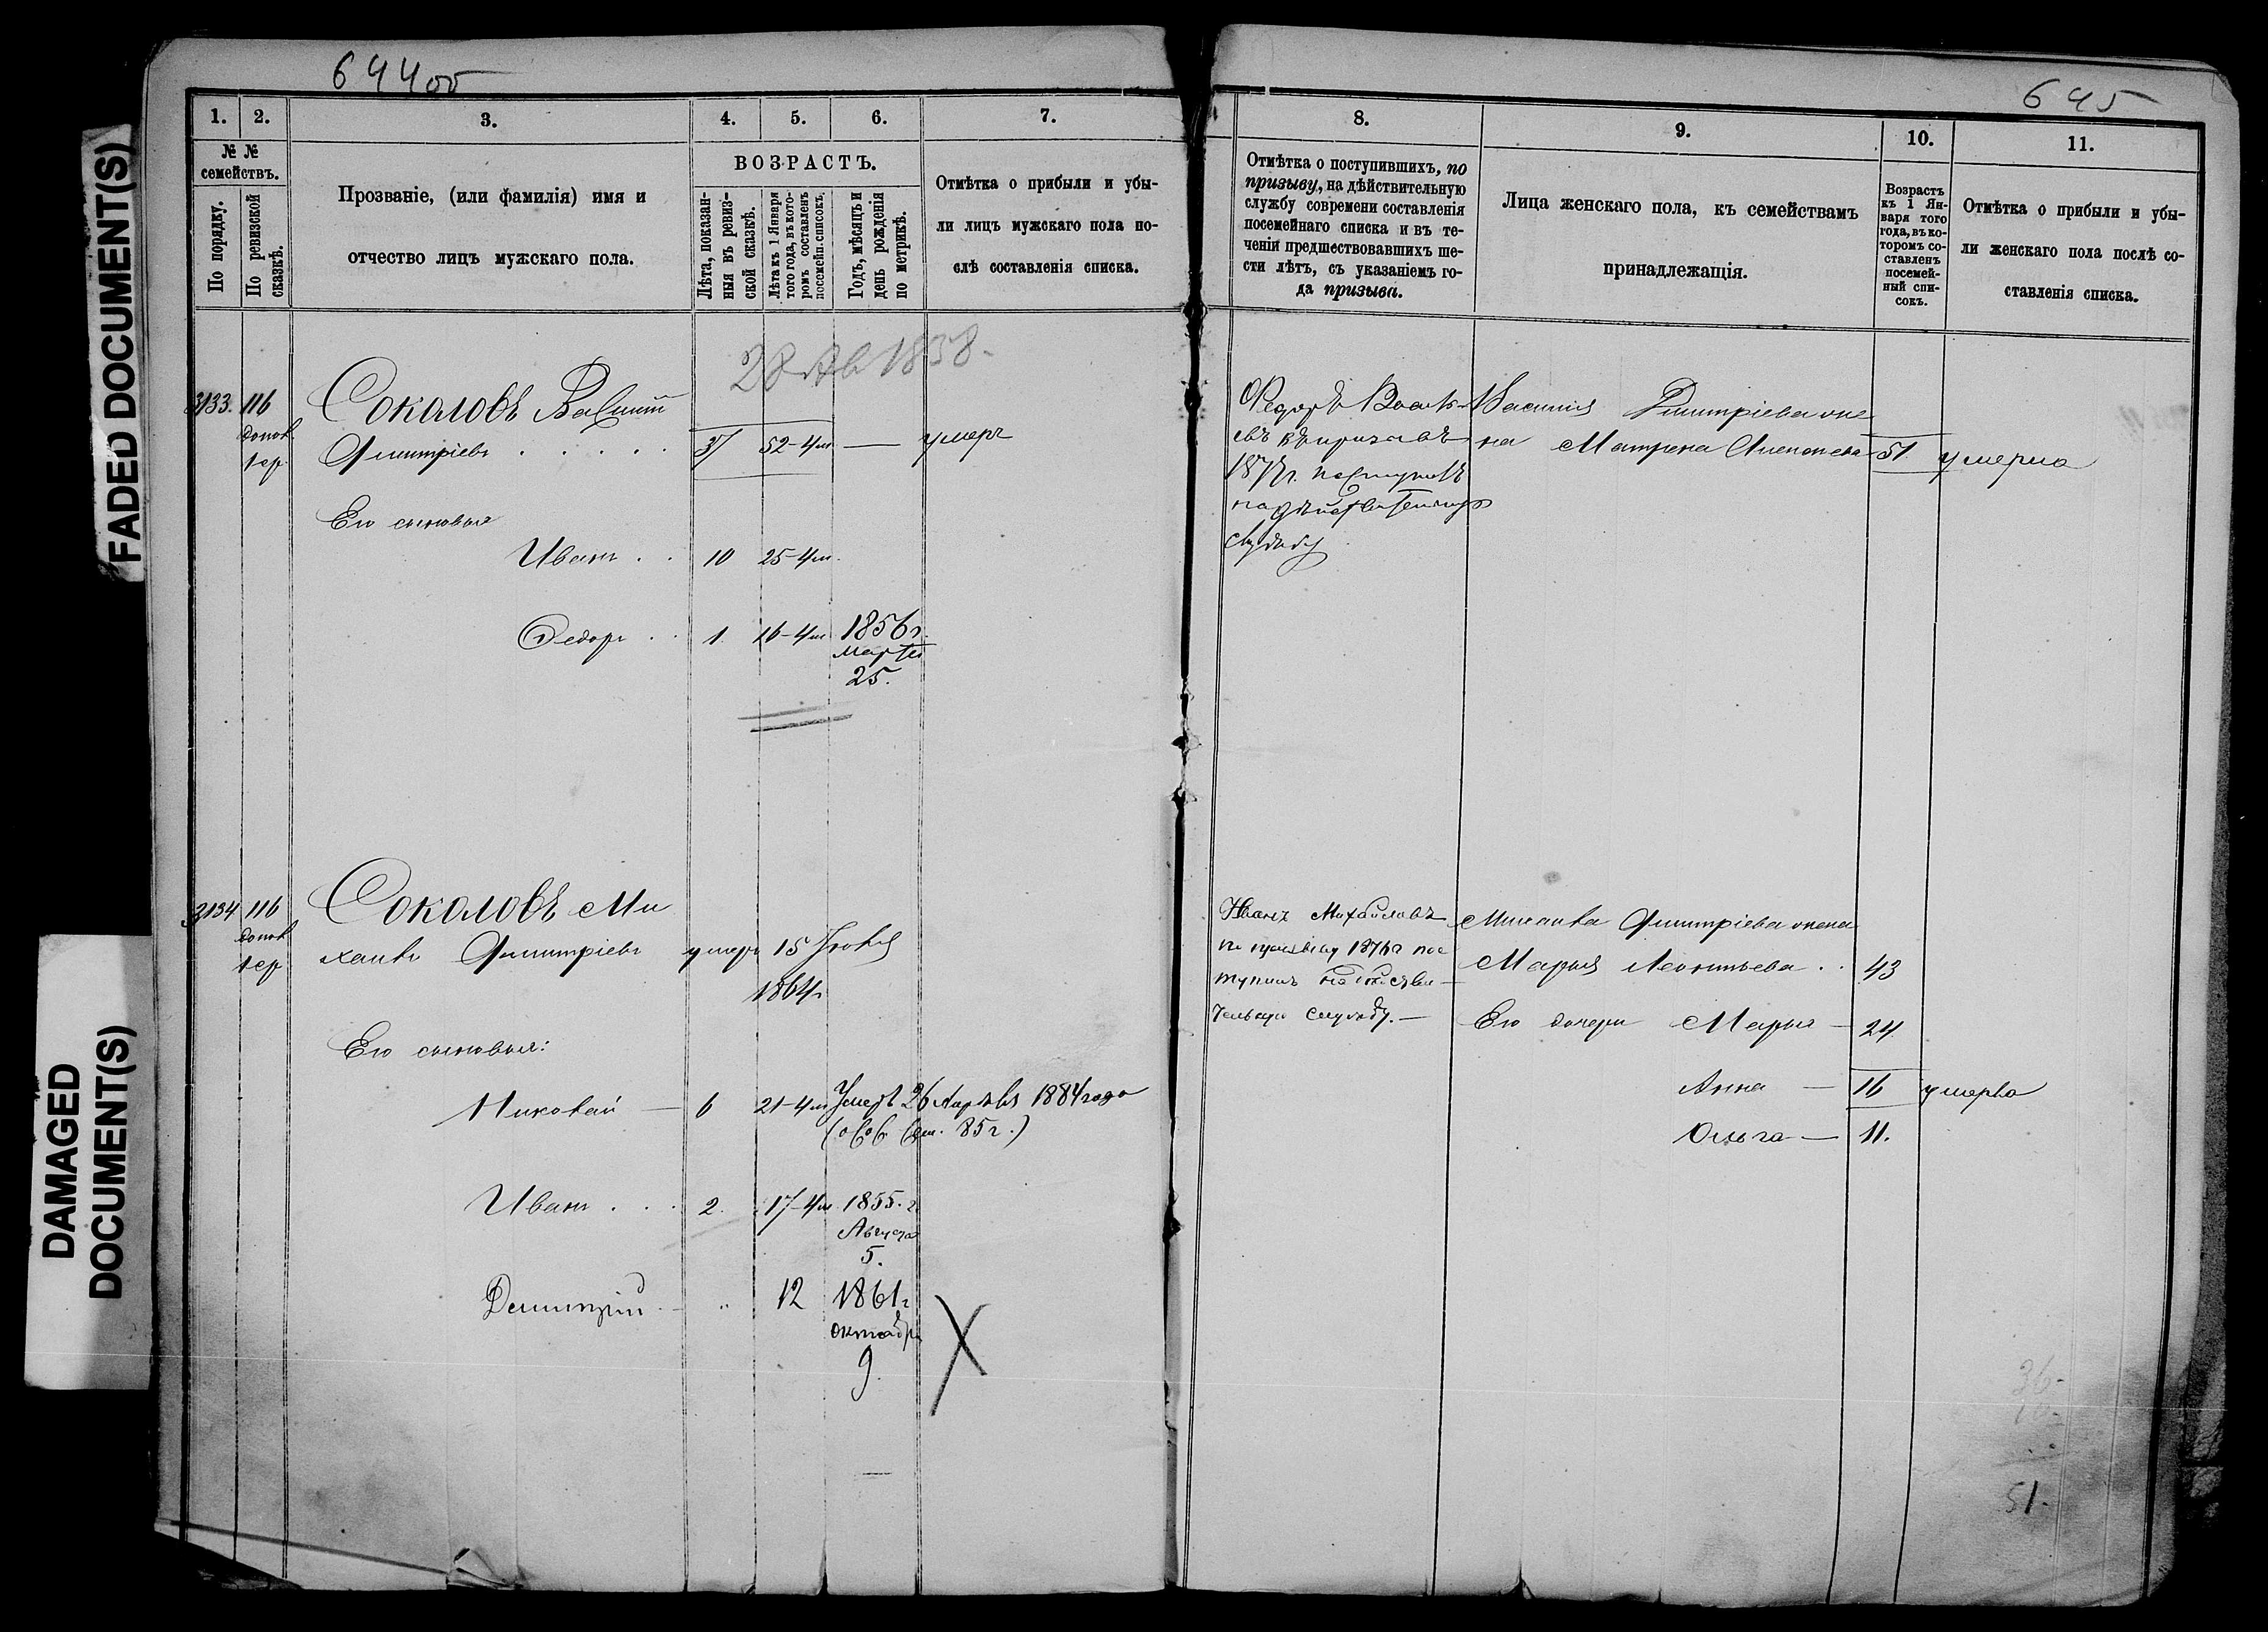 644об
1.
2.
3.
4.
5.
6.
7.
№ №
семействъ.
По порядку.
По ревизской
сказкѣ.
Прозваніе, (или фамилія) имя и
отчество лицъ мужскаго пола.
ВОЗРАСТЪ.
Лѣта, показан-
ныя въ ревиз-
ской сказкѣ.
Лѣта къ 1 Января
того года, въ кото-
ромъ составленъ
посемейн. списокъ.
Годъ, мѣсяцъ и
день рожденія
по метрикѣ.
Отмѣтка о прибыли и убы-
ли лицъ мужскаго пола по-
слѣ составленія списка.
28 1838.
3133. 116
допол
1 ср
Соколовъ Василій
Дмитріевъ . . . . . 37 52-4м — умеръ
Его сыновья
Иванъ . . 10 25-4м.
Федоръ . . 1. 16-4м 1856г.
Марта
25.
3134 116
допол
1 ср
Соколовъ Ми
хаилъ Дмитріевъ умеръ 15
1864г
Его сыновья:
Николай — 6 21-4м Умеръ 26 Апрѣля 1884 года
85г.)
Иванъ . . . 2. 17-4м 1855.г.
Августа
5.
Димитрій — " 12 1861г
октября
9.
645
8.
9.
10.
11.
Отмѣтка о поступившихъ, по
призыву, на дѣйствительную
службу современи составленія
посемейнаго списка и въ те-
ченіи предшествовавшихъ ше-
сти лѣтъ, съ указаніемъ го-
да призыва.
Лица женскаго пола, къ семействамъ
принадлежащія.
Возрастъ
къ 1 Ян-
варя того
года, въ ко-
торомъ со-
ставленъ
посемей-
ный спи-
сокъ.
Отмѣтка о прибыли и убы-
ли женскаго пола послѣ со-
ставленія списка.
Федоръ Василь-
евъ въ призывъ
1877г. поступилъ
на дѣйствительную
службу
Василія Дмитріева же
на Матрена 51 умерла
Иванъ Михайловъ
по призыву 1876г пос
тупилъ на дѣйстви-
тельную службу. —
Михаила Дмитріева жена
Марья Леонтьева . . 43
Его дочери Марья — 24
Анна — 16 умерла
Ольга — 11.
36-
51-
FADED DOCUMENT(S)
DAMAGED
DOCUMENT(S)